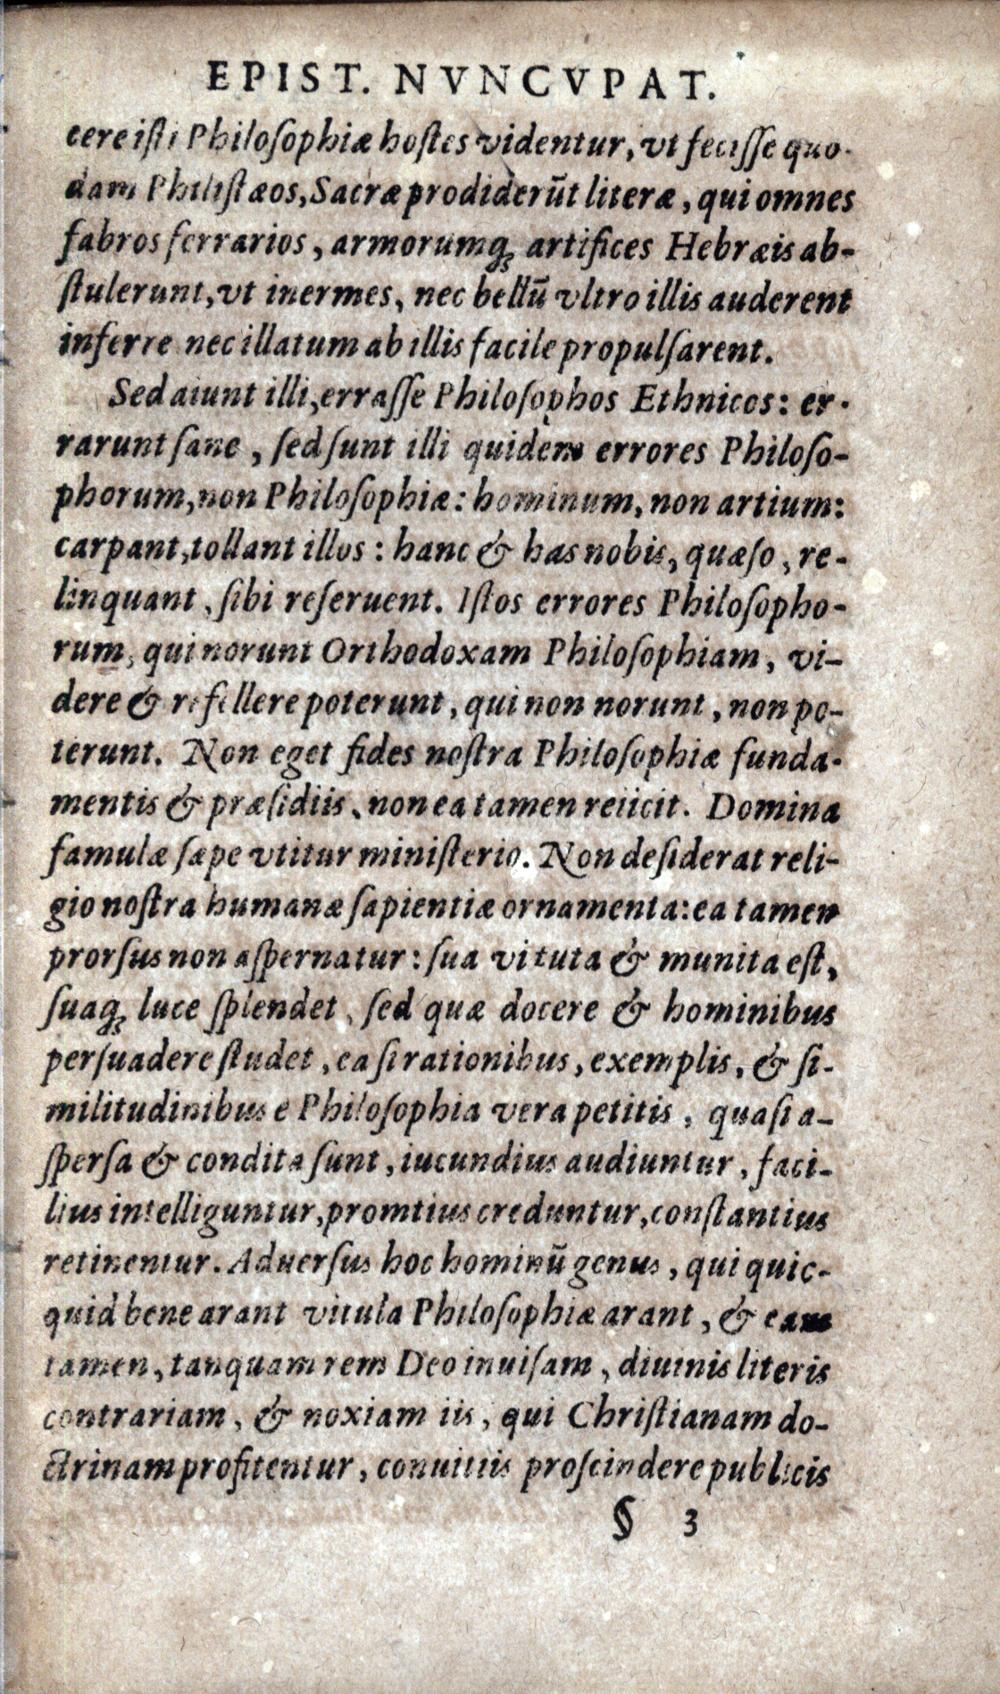 EPIST. NVNCVPAT.
cere iſti Philoſophiæ hoſtes videntur, vt feciſſe quo-
dam Philiſtæos, Sacræ prodiderũt literæ, qui omnes
fabros ferrarios, armorumq́; artifices Hebræis ab-
ſtulerunt, vt inermes, nec bellũ vltro illis auderent
inferre nec illatum ab illis facile propulſarent.
Sed aiunt illi, erraſſe Philoſophos Ethnicos: er-
rarunt ſane, ſed ſunt illi quidem errores Philoſo-
phorum, non Philoſophiæ: hominum, non artium:
carpant, tollant illos: hanc & has nobis, quæſo, re-
linquant, ſibi reſeruent. Iſtos errores Philoſopho-
rum, qui norunt Orthodoxam Philoſophiam, vi-
dere & refellere poterunt, qui non norunt, non po-
terunt. Non eget fides noſtra Philoſophiæ funda-
mentis & præſidiis, non ea tamen reiicit. Domina
famulæ ſæpe vtitur miniſterio. Non deſiderat reli-
gio noſtra humanæ ſapientiæ ornamenta: ea tamen
prorſus non aſpernatur: ſua vi tuta & munita eſt,
ſuaq; luce ſplendet, ſed quæ docere & hominibus
perſuadere ſtudet, ea ſi rationibus, exemplis, & ſi-
militudinibus e Philoſophia vera petitis, quaſi a-
ſperſa & condita ſunt, iucundius audiuntur, faci-
lius intelliguntur, promtius creduntur, conſtantius
retinentur. Aduerſus hoc hominũ genus, qui quic-
quid bene arant vitula Philoſophiæ arant, & eam
tamen, tanquam rem Deo inuiſam, diuinis literis
contrariam, & noxiam iis, qui Chriſtianam do-
ctrinam profitentur, conuitiis proſcindere publicis
§ 3